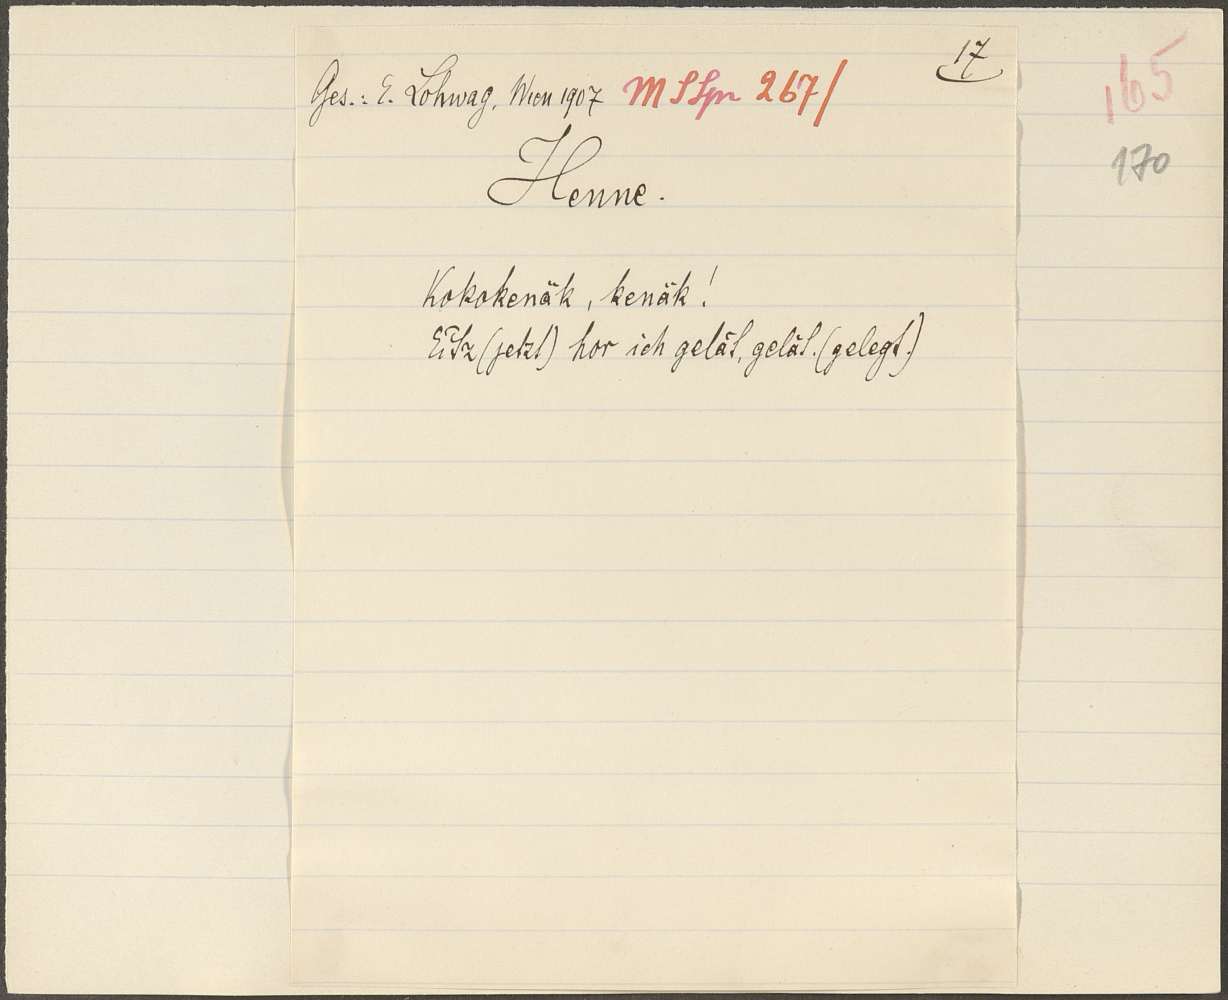 17
Ges.: E. Lohwag, Wien 1907 M S Spr 267/
165
170
Henne.
Kokokenäk, kenäk!
Eitz (jetzt) hor ich gelät, gelät. (gelegt.)